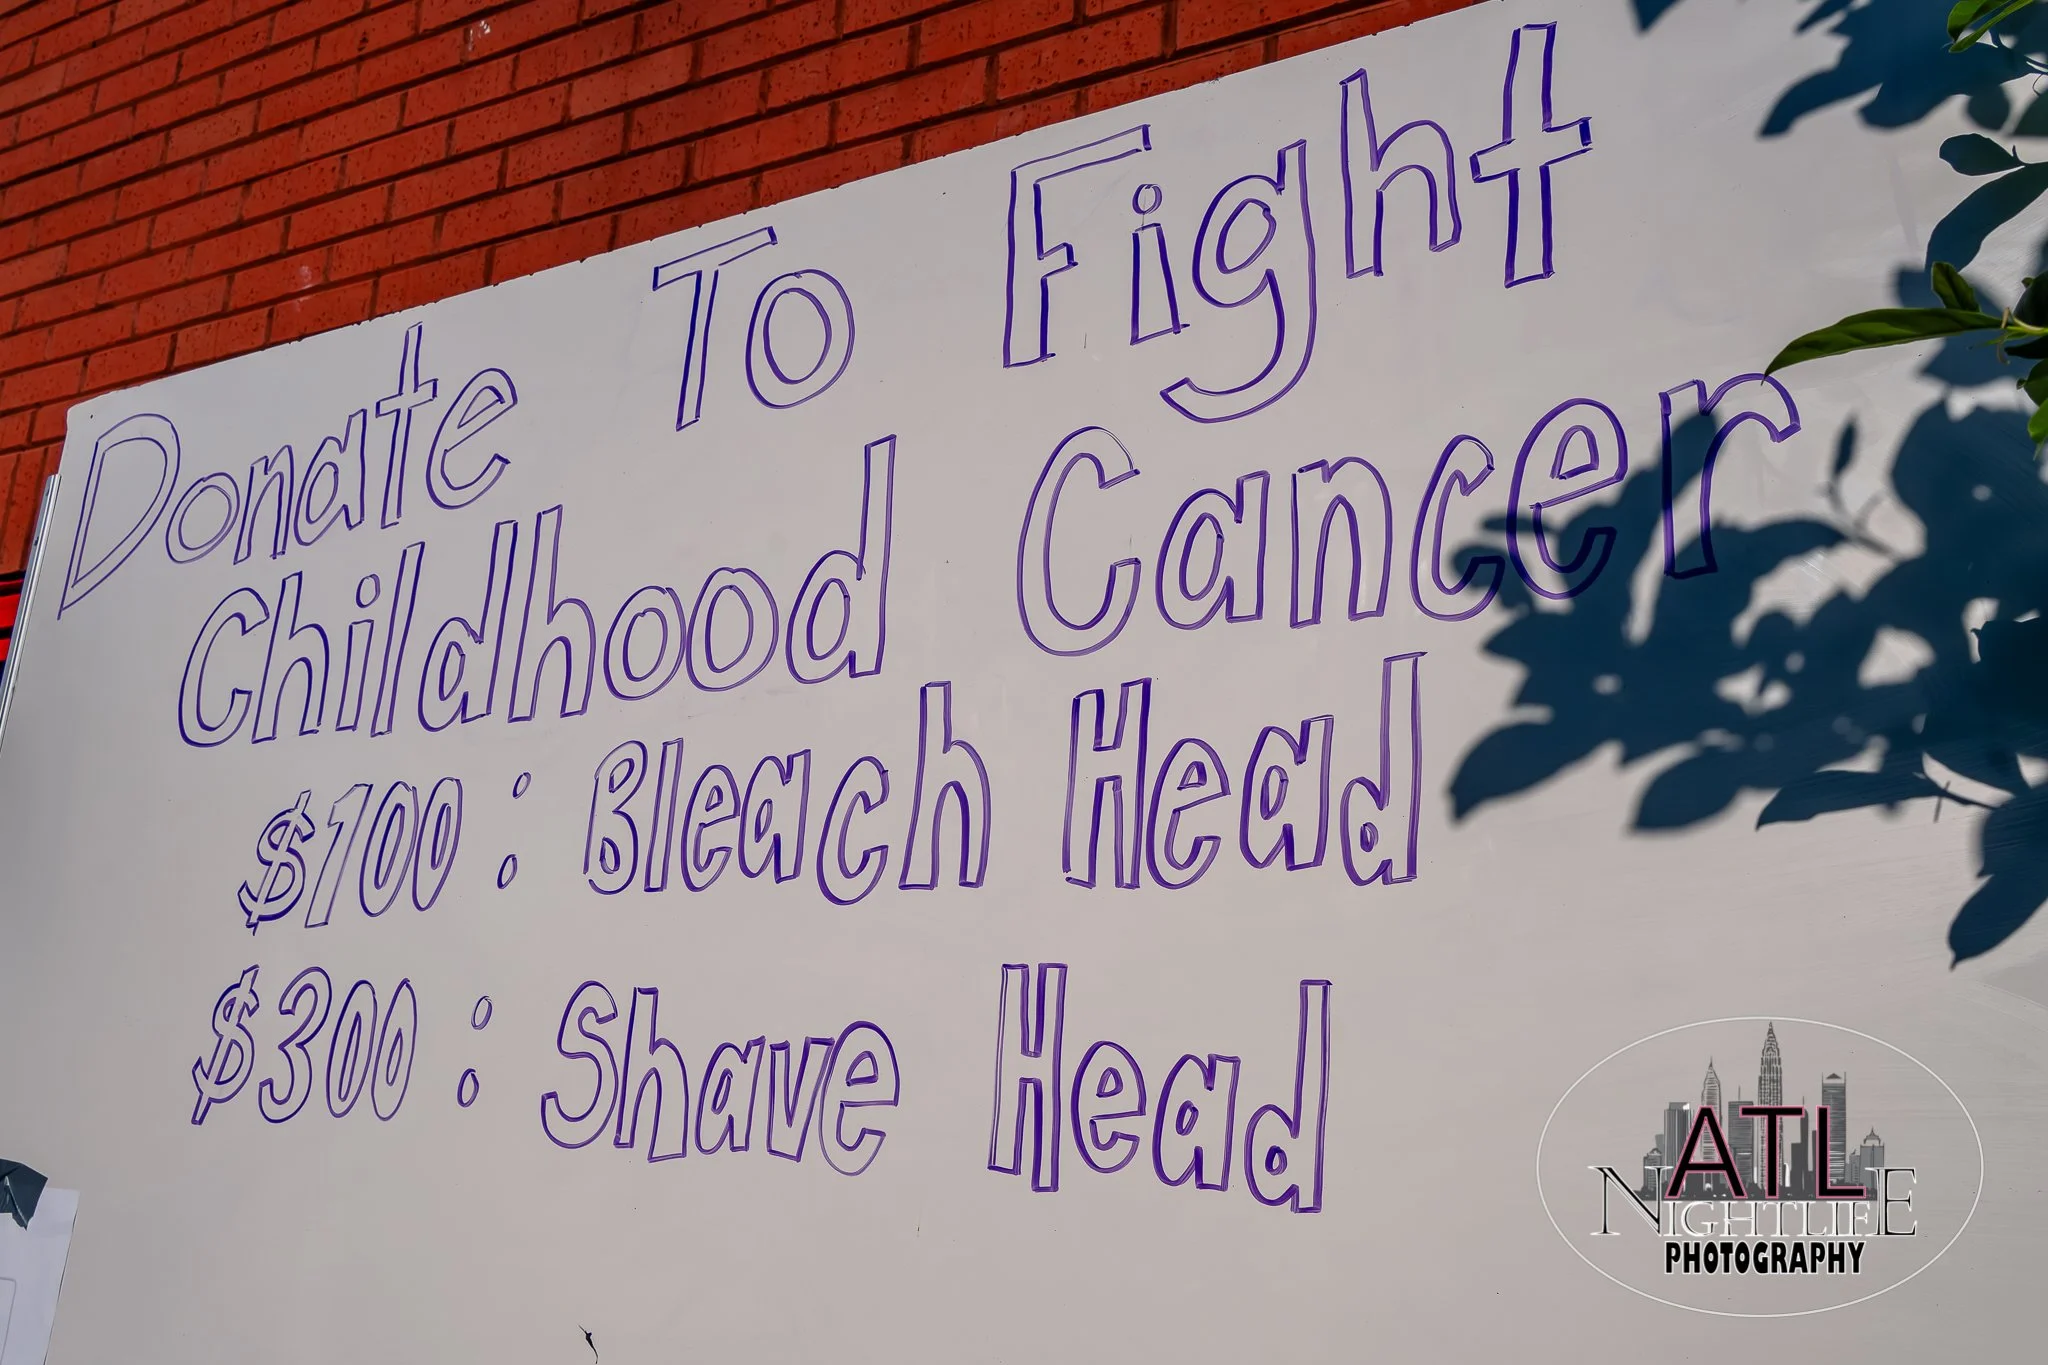 Donate To Fight
Childhood Cancer
$100: Bleach Head
$300: Shave Head
ATL
NIGHTLIFE
PHOTOGRAPHY